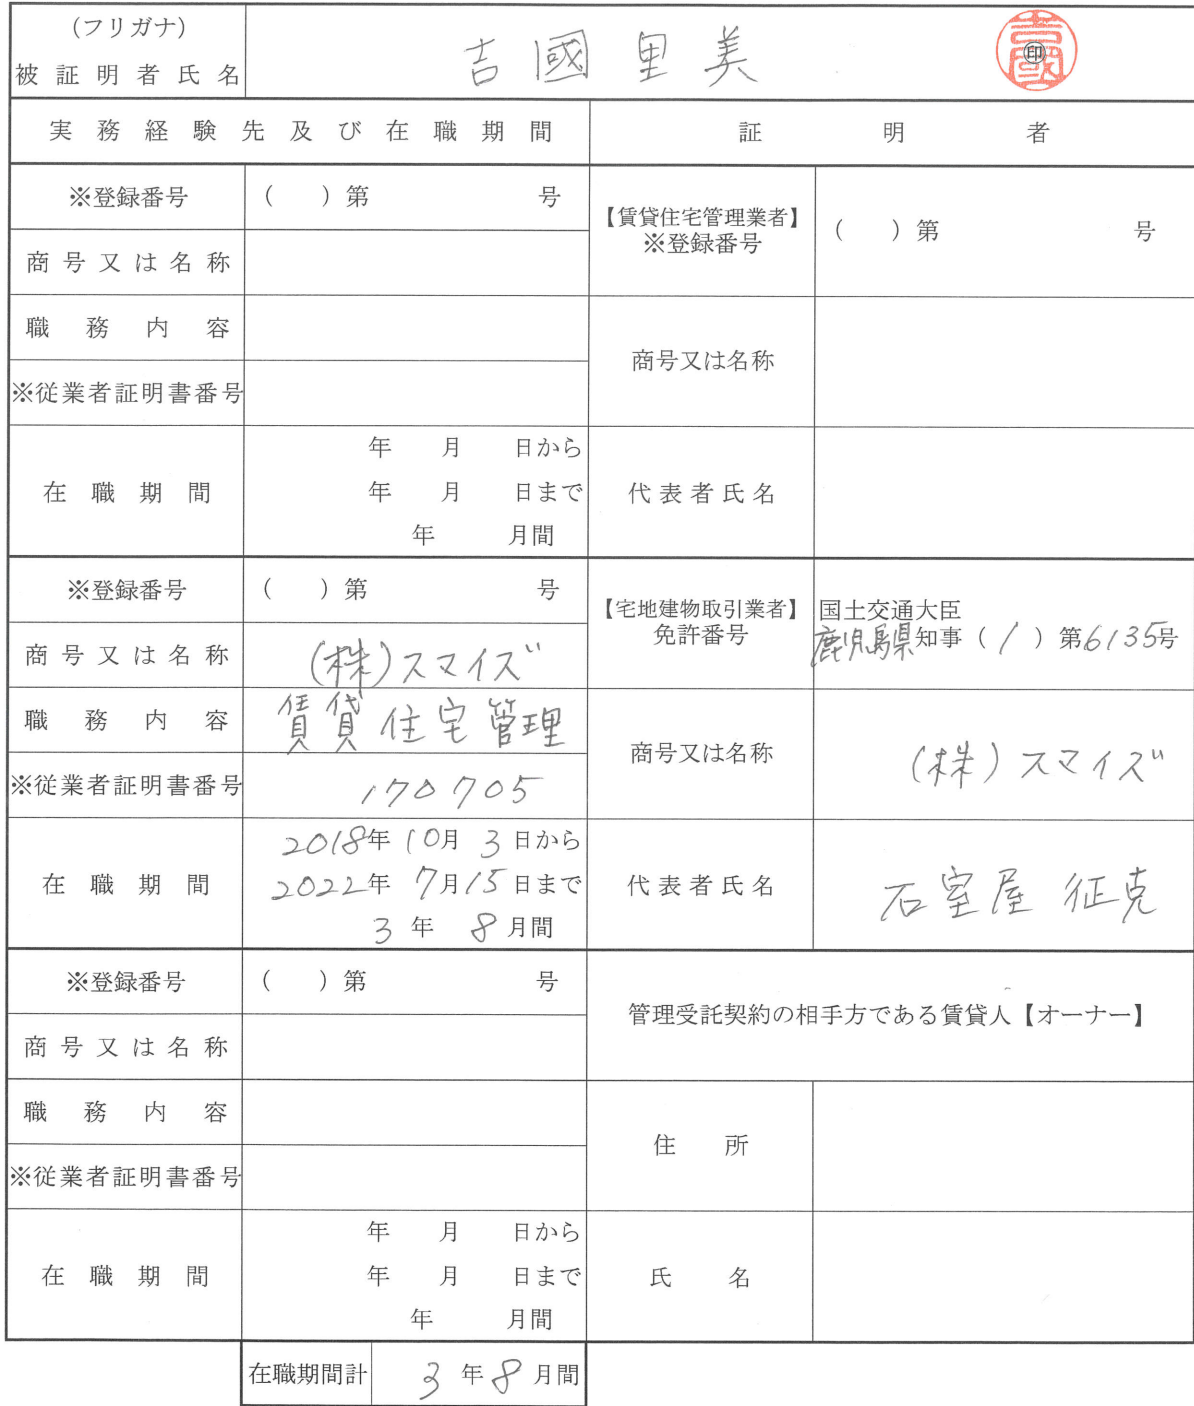 (フリガナ)
被証明者氏名 吉國 里美 ㊞
実務経験先及び在職期間 証明者
※登録番号 ( )第 号
商号又は名称
職務内容
※従業者証明書番号
在職期間 年 月 日から
年 月 日まで
年 月間
【賃貸住宅管理業者】
※登録番号 ( )第 号
商号又は名称
代表者氏名
※登録番号 ( )第 号
商号又は名称 (株)スマイズ
職務内容 賃貸住宅管理
※従業者証明書番号 170705
在職期間 2018年10月3日から
2022年7月15日まで
3年8月間
【宅地建物取引業者】 国土交通大臣
免許番号 鹿児島県知事(1)第6135号
商号又は名称 (株)スマイズ
代表者氏名 石室屋 征克
※登録番号 ( )第 号
商号又は名称
職務内容
※従業者証明書番号
在職期間 年 月 日から
年 月 日まで
年 月間
管理受託契約の相手方である賃貸人【オーナー】
住所
氏名
在職期間計 3年8月間